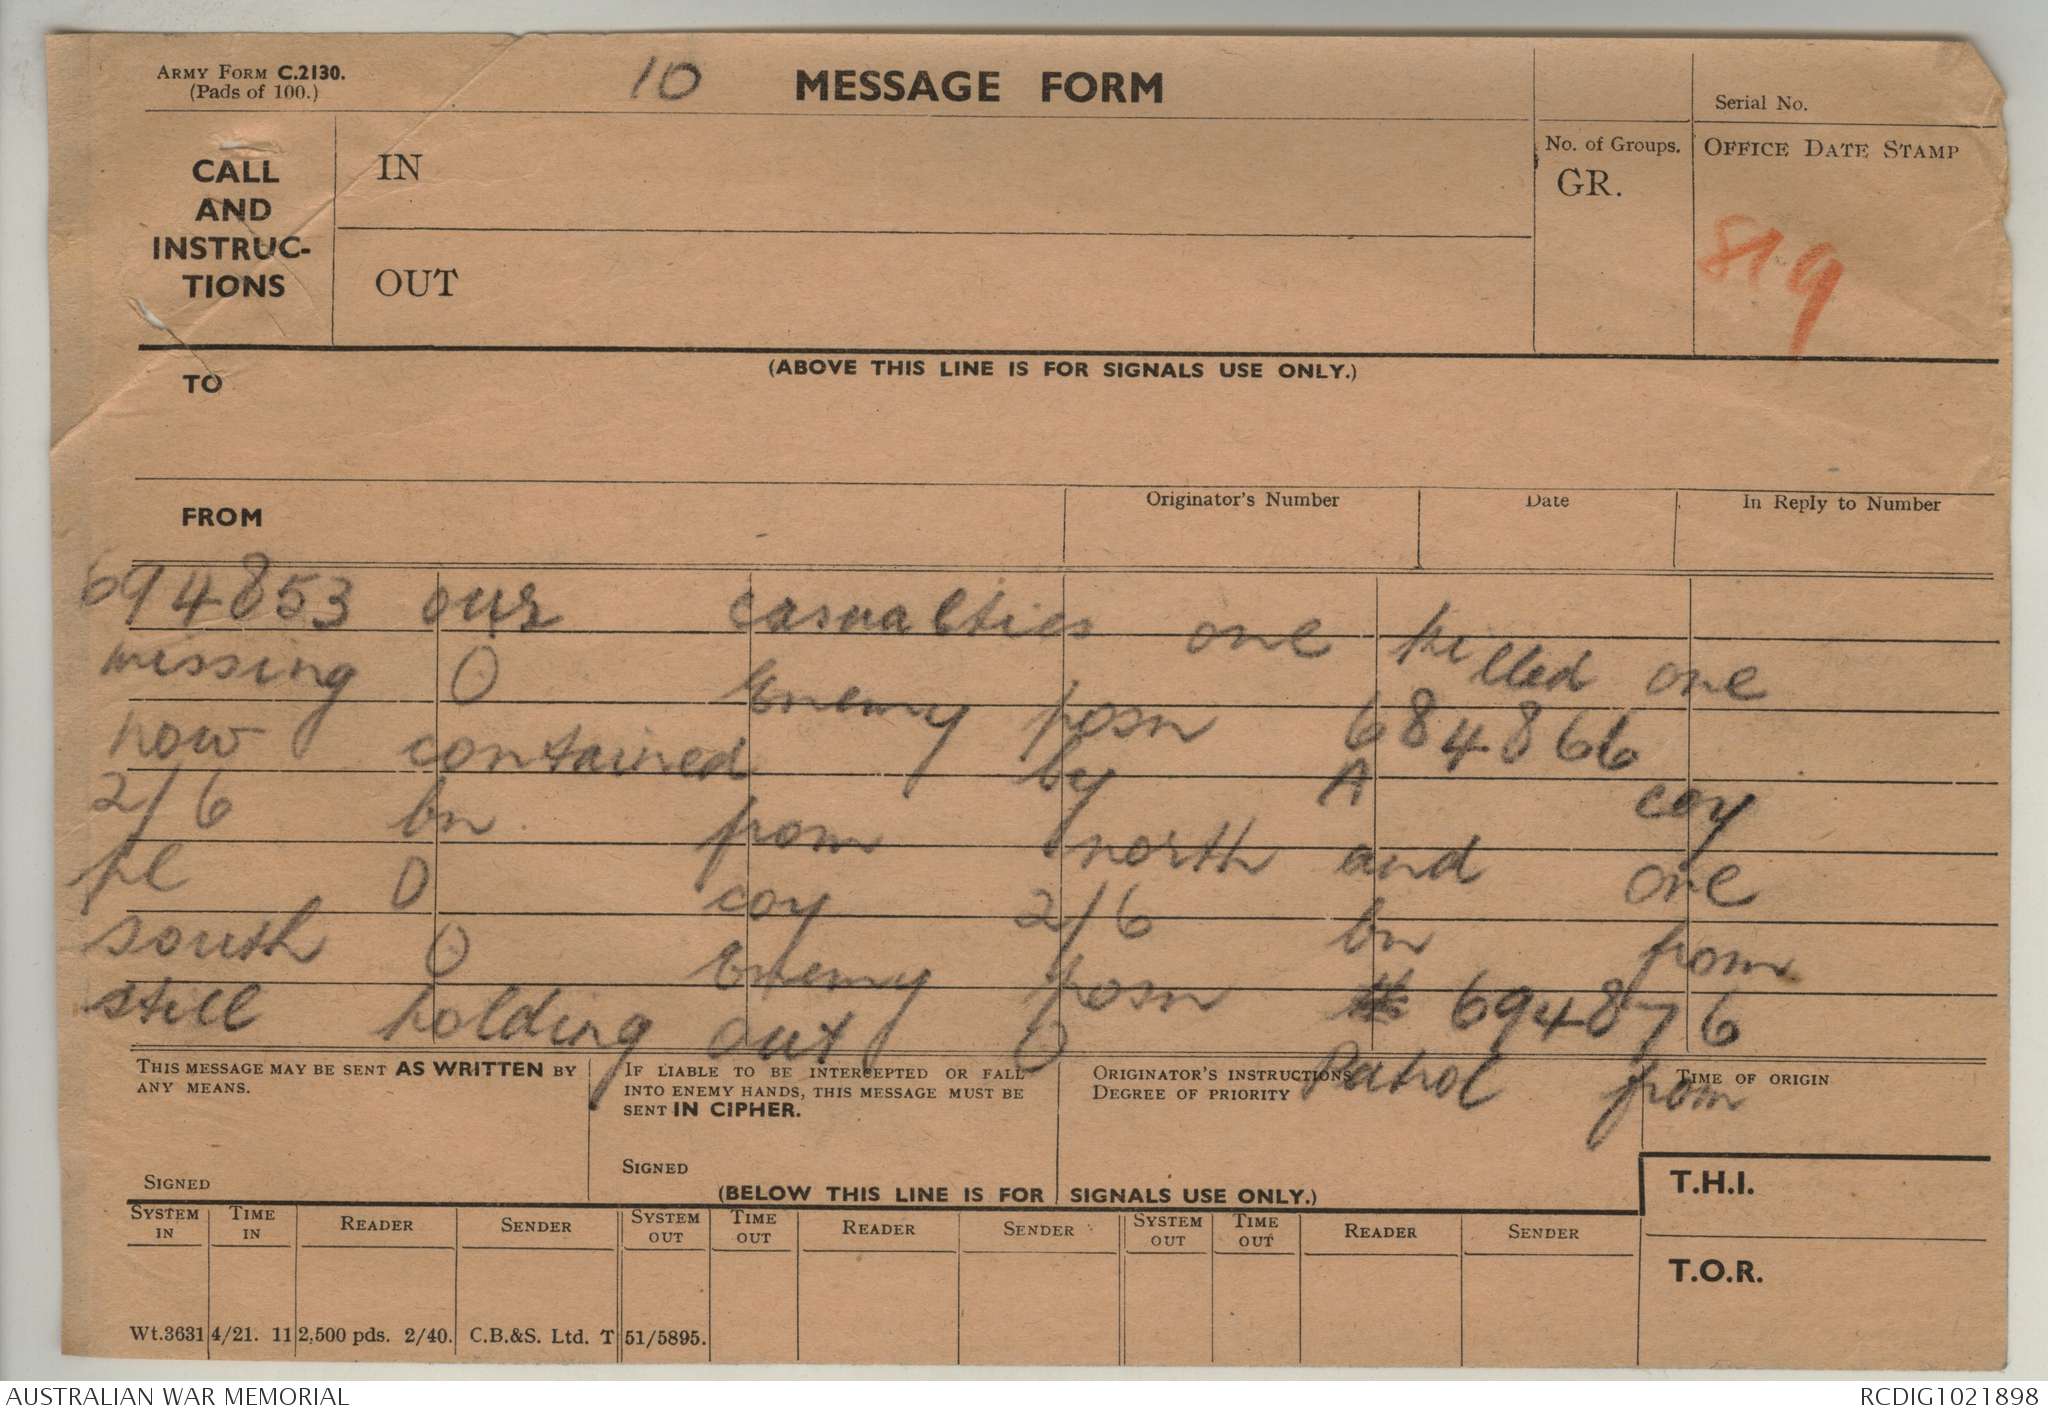 ARMY FORM C.2130.
(Pads of 100.)
10
MESSAGE FORM
Serial No.
CALL
AND
INSTRUC-
TIONS
IN
OUT
No. of Groups.
GR.
OFFICE DATE STAMP
819
(ABOVE THIS LINE IS FOR SIGNALS USE ONLY.)
TO
FROM
Originator's Number
Date
In Reply to Number
694853 our casualties one killed one
missing O Enemy posn 684866
now contained by A coy
2/6 bn from north and one
pl D coy 2/6 bn from
south O Enemy posn 694876
still holding out O Patrol from
THIS MESSAGE MAY BE SENT AS WRITTEN BY
ANY MEANS.
SIGNED
IF LIABLE TO BE INTERCEPTED OR FALL
INTO ENEMY HANDS, THIS MESSAGE MUST BE
SENT IN CIPHER.
SIGNED
ORIGINATOR'S INSTRUCTIONS
DEGREE OF PRIORITY
TIME OF ORIGIN
(BELOW THIS LINE IS FOR SIGNALS USE ONLY.)
T.H.I.
T.O.R.
SYSTEM IN
TIME IN
READER
SENDER
SYSTEM OUT
TIME OUT
READER
SENDER
SYSTEM OUT
TIME OUT
READER
SENDER
Wt.3631 4/21. 112,500 pds. 2/40. C.B.&S. Ltd. T 51/5895.
AUSTRALIAN WAR MEMORIAL
RCDIG1021898